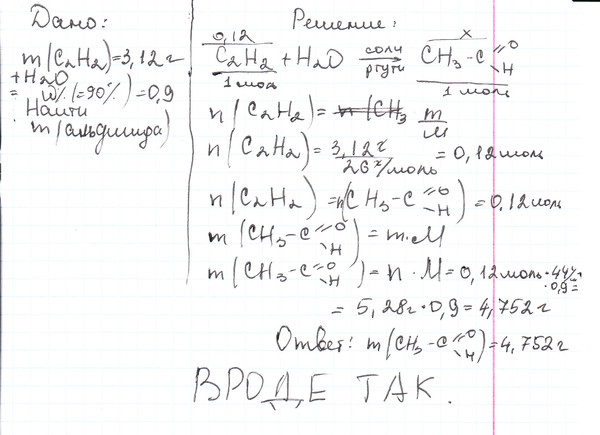 Дано:
m(C₂H₂)=3,12г
+H₂O
= W%(=90%)=0,9
Найти
m(альдегида)
Решение:
0,12 x
C₂H₂+H₂O соли ртути → CH₃-C=O -H
1 моль 1 моль
n(C₂H₂)= n(CH₃ m/M
n(C₂H₂)= 3,12г / 26г/моль =0,12моль
n(C₂H₂)=n(CH₃-C=O -H)=0,12моль
m(CH₃-C=O -H)=m·M
m(CH₃-C=O -H)=n·M=0,12моль·44г/ ·0,9=
=5,28г·0,9=4,752г
Ответ: m(CH₃-C=O -H)=4,752г
ВРОДЕ ТАК.